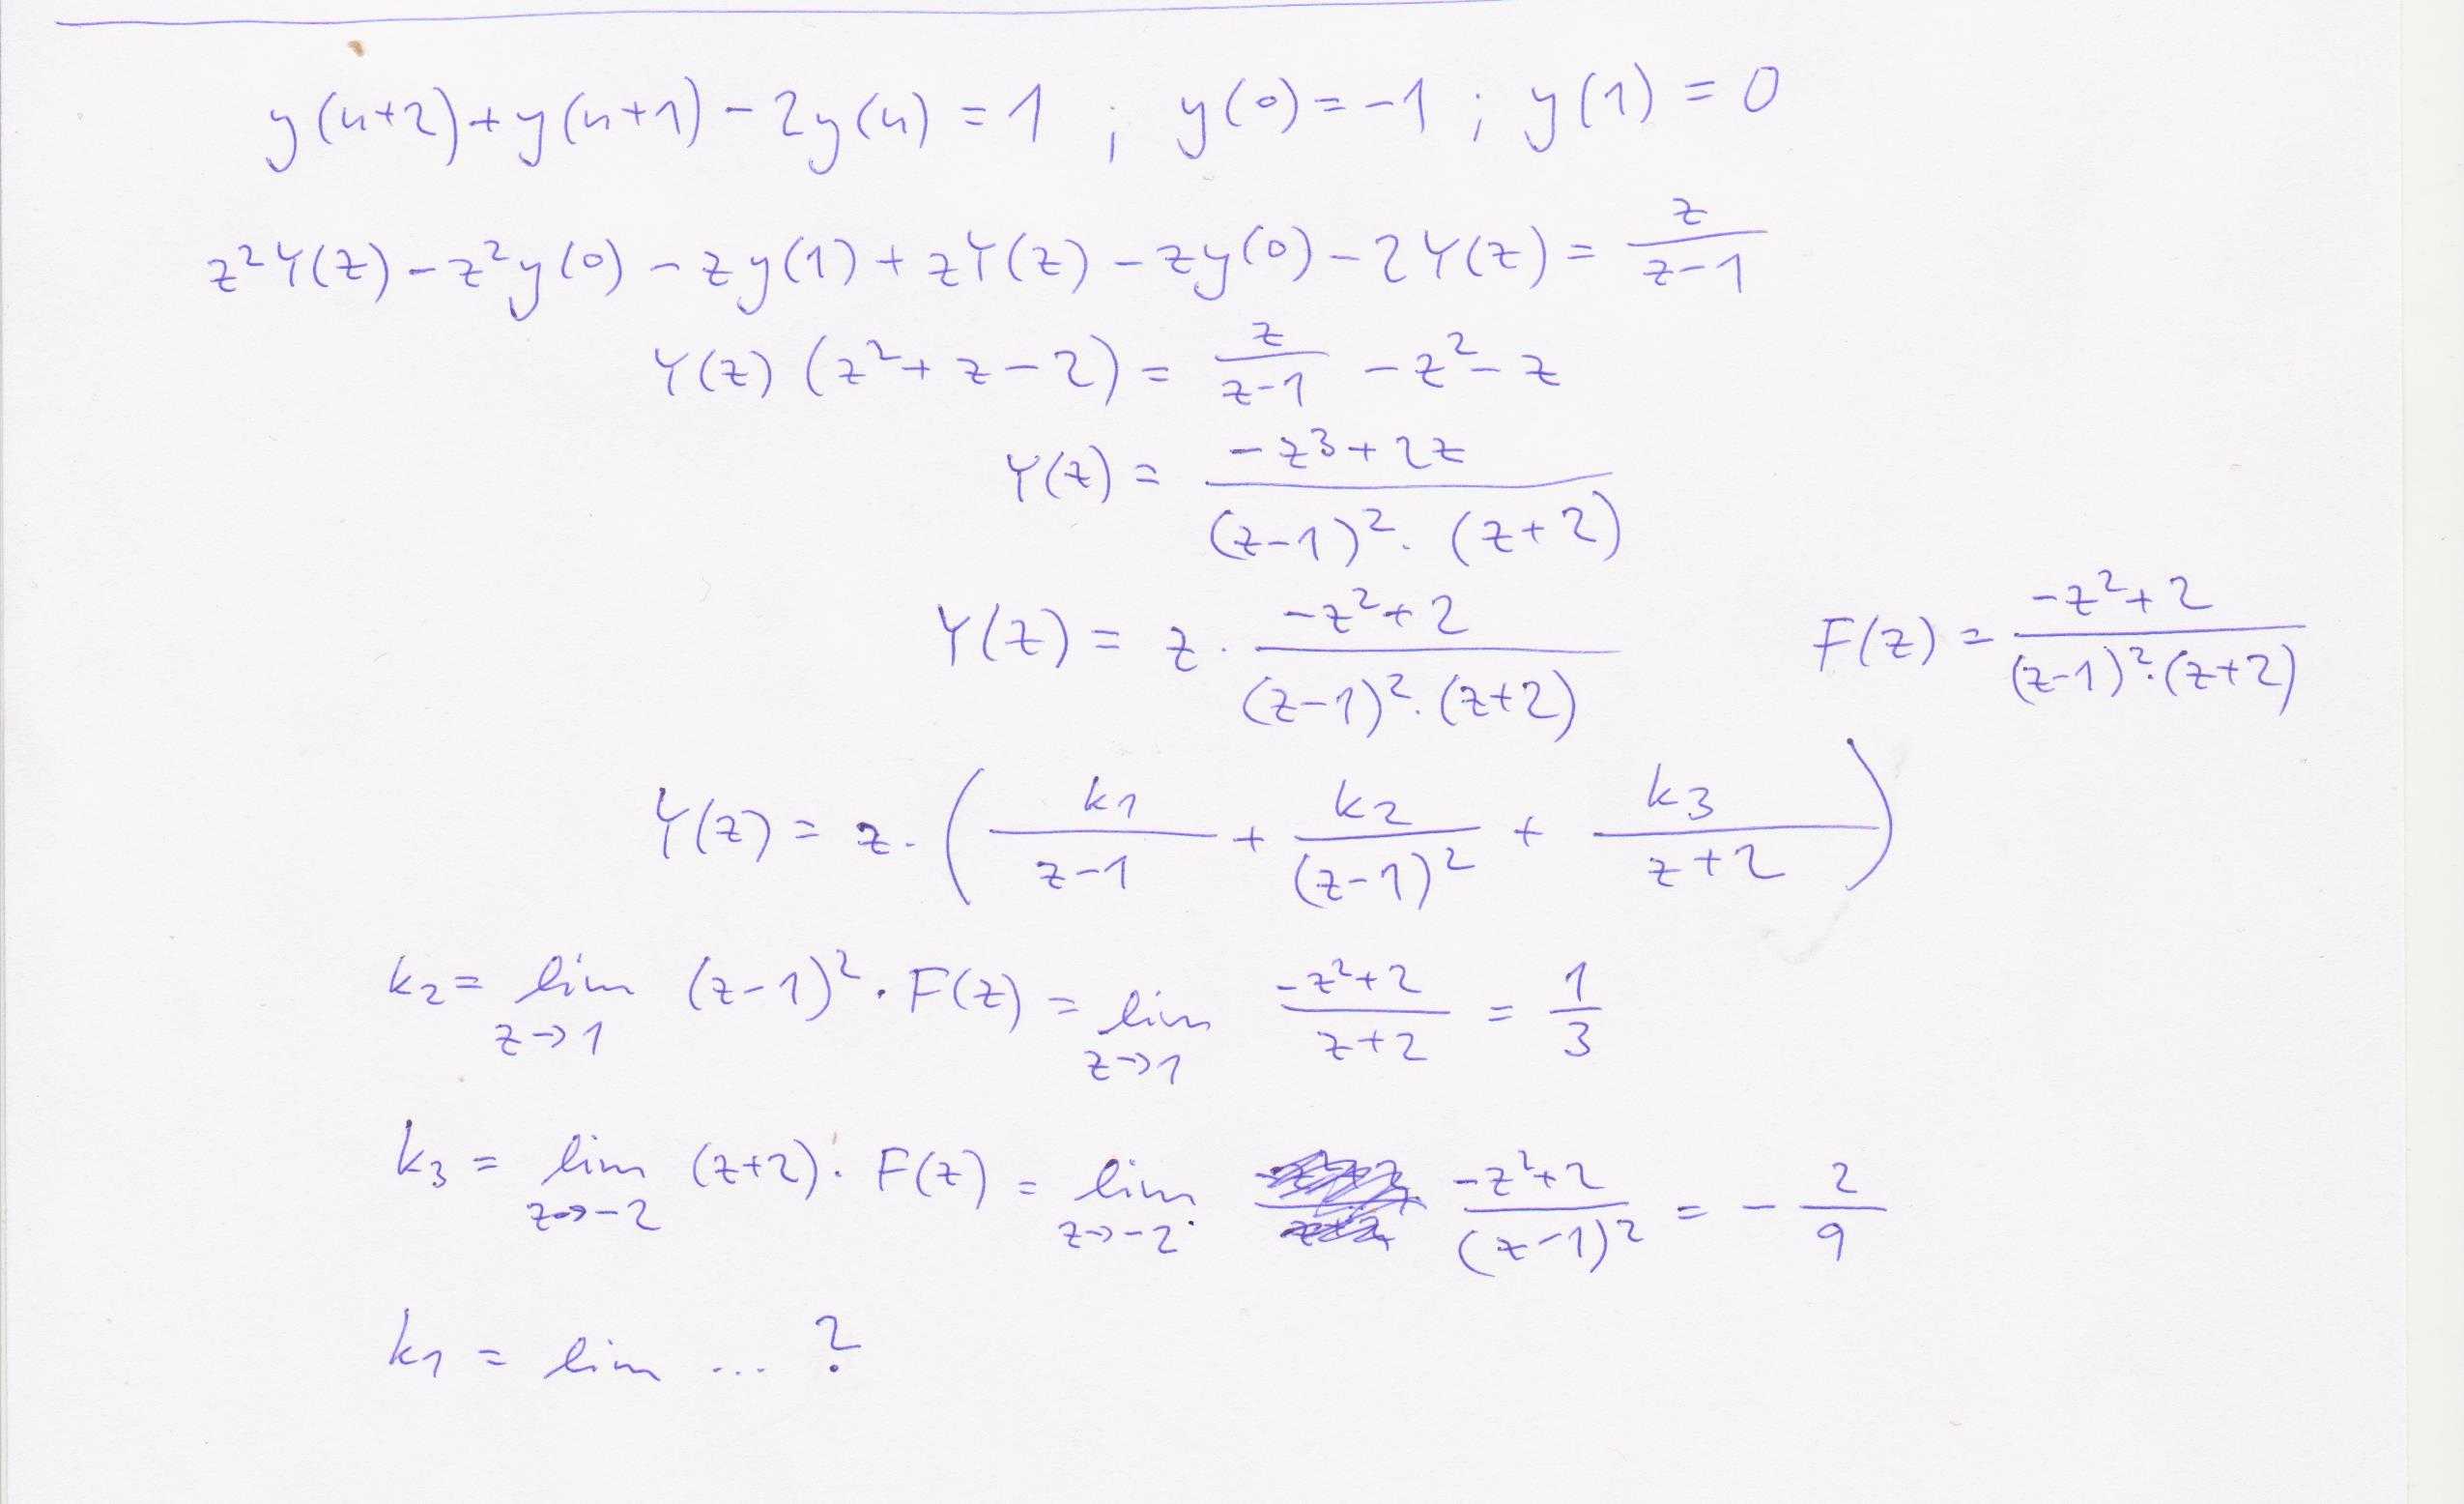 y(n+2)+y(n+1)-2y(n) = 1 ; y(0)=-1 ; y(1) = 0
z²Y(z) - z²y(0) - zy(1) + zY(z) - zy(0) - 2Y(z) = z/(z-1)
Y(z) (z²+z-2) = z/(z-1) - z² - z
Y(z) = (-z³+2z)/((z-1)².(z+2))
Y(z) = z . (-z²+2)/((z-1)².(z+2)) F(z) = (-z²+2)/((z-1)².(z+2))
Y(z) = z . (k1/(z-1) + k2/(z-1)² + k3/(z+2))
k2 = lim z→1 (z-1)² . F(z) = lim z→1 (-z²+2)/(z+2) = 1/3
k3 = lim z→-2 (z+2) . F(z) = lim z→-2 (-z²+2)/(z-1)² = - 2/9
k1 = lim ... ?